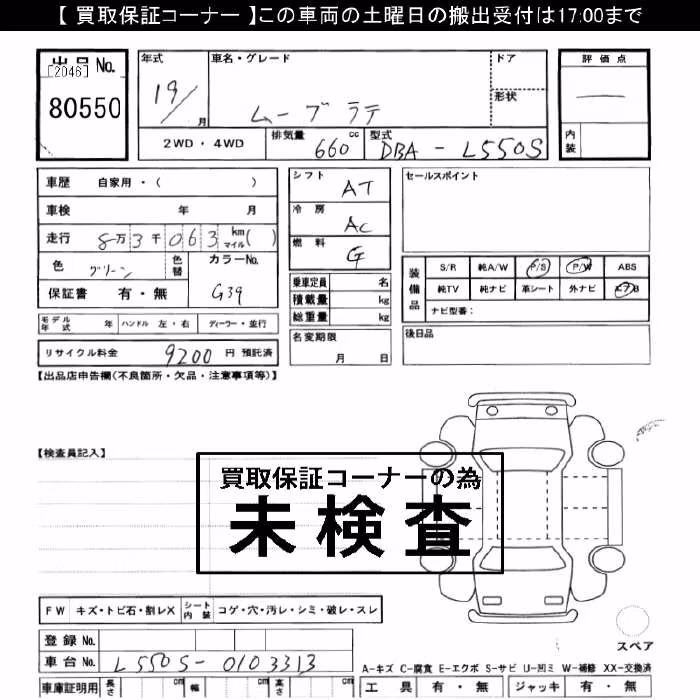 【 買取保証コーナー 】この車両の土曜日の搬出受付は17:00まで
出品 No.
[2046]
80550
年式
19/
月
車名・グレード
ムーブラテ
ドア
形状
評価点
内装
2WD・4WD
排気量 660 cc
型式 DBA - L550S
車歴 自家用・( )
車検 年 月
走行 8万3千063 km マイル( )
色 グリーン 色替
カラーNo. G39
保証書 有・無
モデル年式 年 ハンドル 左・右 ディーラー・並行
リサイクル料金 9200 円 預託済
シフト AT
冷房 AC
燃料 G
乗車定員 名
積載量 kg
総重量 kg
名変期限
月 日
セールスポイント
装備品
S/R 純A/W P/S P/W ABS
純TV 純ナビ 革シート 外ナビ エアB
ナビ型番:
後日品
【出品店申告欄(不良箇所・欠品・注意事項等)】
【検査員記入】
買取保証コーナーの為
未検査
FW キズ・トビ石・割レX シート内装 コゲ・穴・汚レ・シミ・破レ・スレ
登録 No.
車台 No. L550S-0103313
車庫証明用 長さ cm 幅 cm 高さ cm
スペア
A-キズ C-腐食 E-エクボ S-サビ U-凹ミ W-補修 XX-交換済
工具 有・無 ジャッキ 有・無